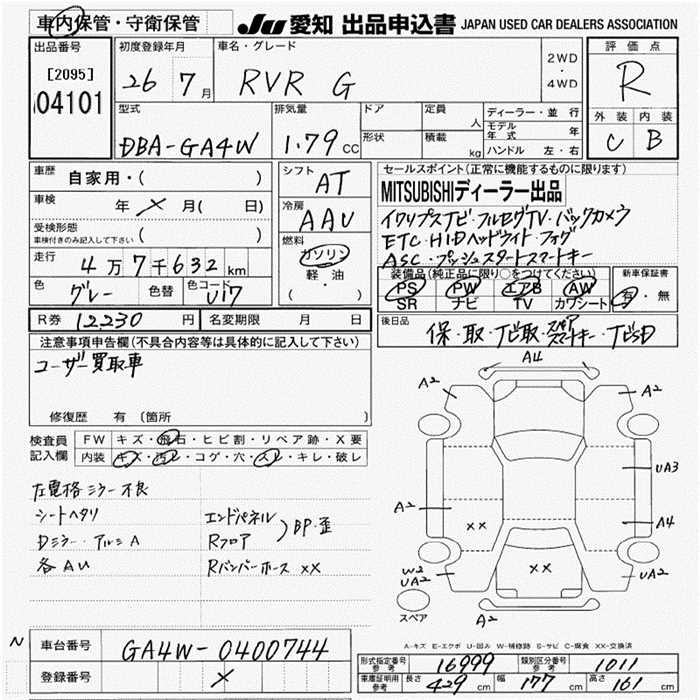 車内保管・守衛保管
JU 愛知 出品申込書 JAPAN USED CAR DEALERS ASSOCIATION
出品番号
[2095]
04101
初度登録年月
26 7月
車名・グレード
RVR G
2WD
・
4WD
評価点
R
外装 内装
C B
型式
DBA-GA4W
排気量
1.79 CC
ドア
形状
定員
人
積載
kg
ディーラー・並行
モデル年式 年
ハンドル 左・右
車歴
自家用・( )
車検
年 × 月( 日)
受検形態
車検付きのみ記入して下さい ( )
走行
4万7千632km
色
グレー
色替
色コード
U17
シフト
AT
冷房
AAC
燃料
ガソリン
軽・油
・( )
セールスポイント(正常に機能するものに限ります)
MITSUBISHIディーラー出品
イクリプスナビ・フルセグTV・バックカメラ
ETC・HIDヘッドライト・フォグ
ASC・プッシュスタートスマートキー
装備品(純正品に限り○をつけてください)
PS PW エアB AW
SR ナビ TV カワシート
新車保証書
有・無
R券 12,230 円
名変期限 月 日
後日品
保・取・ナビ取・スペアスマートキー・ナビSD
注意事項申告欄(不具合内容等は具体的に記入して下さい)
ユーザー買取車
修復歴 有 (箇所 )
検査員記入欄
FW キズ・飛石・ヒビ割・リペア跡・X要
内装 キズ・汚レ・コゲ・穴・スレ・キレ・破レ
左電格ミラー不良
シートヘタリ
Dミラー・アルミA
各AU
エンドパネル
Rフロア
BP・歪
Rバンパーホース XX
A4
A2
A2
UA3
A2
XX
A4
W2
UA2
XX
UA2
A2
スペア
A-キズ E-エクボ U-凹み W-補修跡 S-サビ C-腐食 XX-交換済
N
車台番号
GA4W-0400744
登録番号
×
形式指定番号 参考 16999
類別区分番号 参考 1011
車庫証明用 参考 長さ 429 cm 幅 177 cm 高さ 161 cm